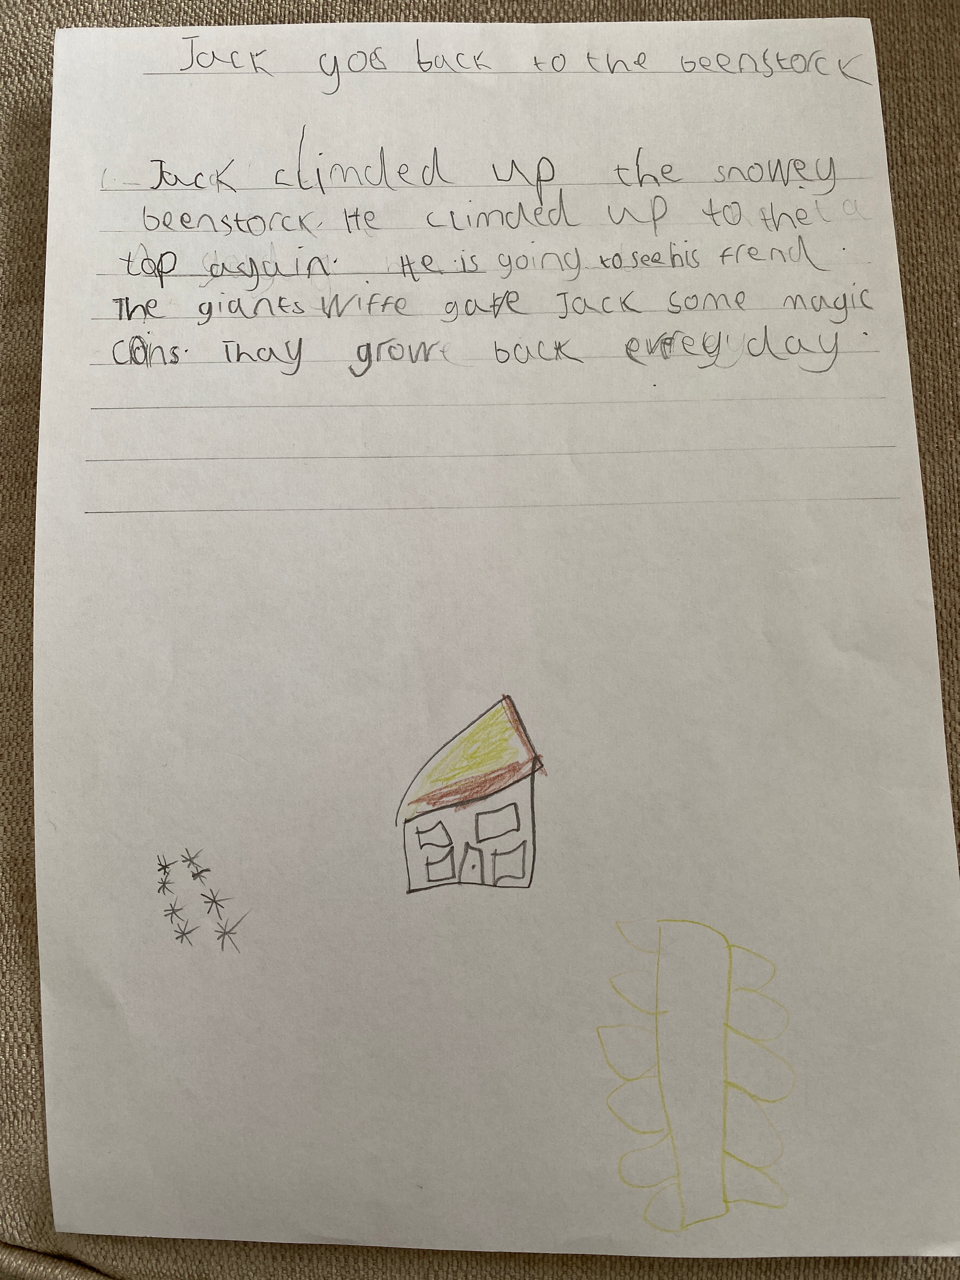 Jack gos back to the beenstorck
Jack climded up the snowey
beenstorck. He climded up to the
top again. He is going to see his frend.
The giants Wiffe gave Jack some magic
Coins. Thay grow back evrey day.